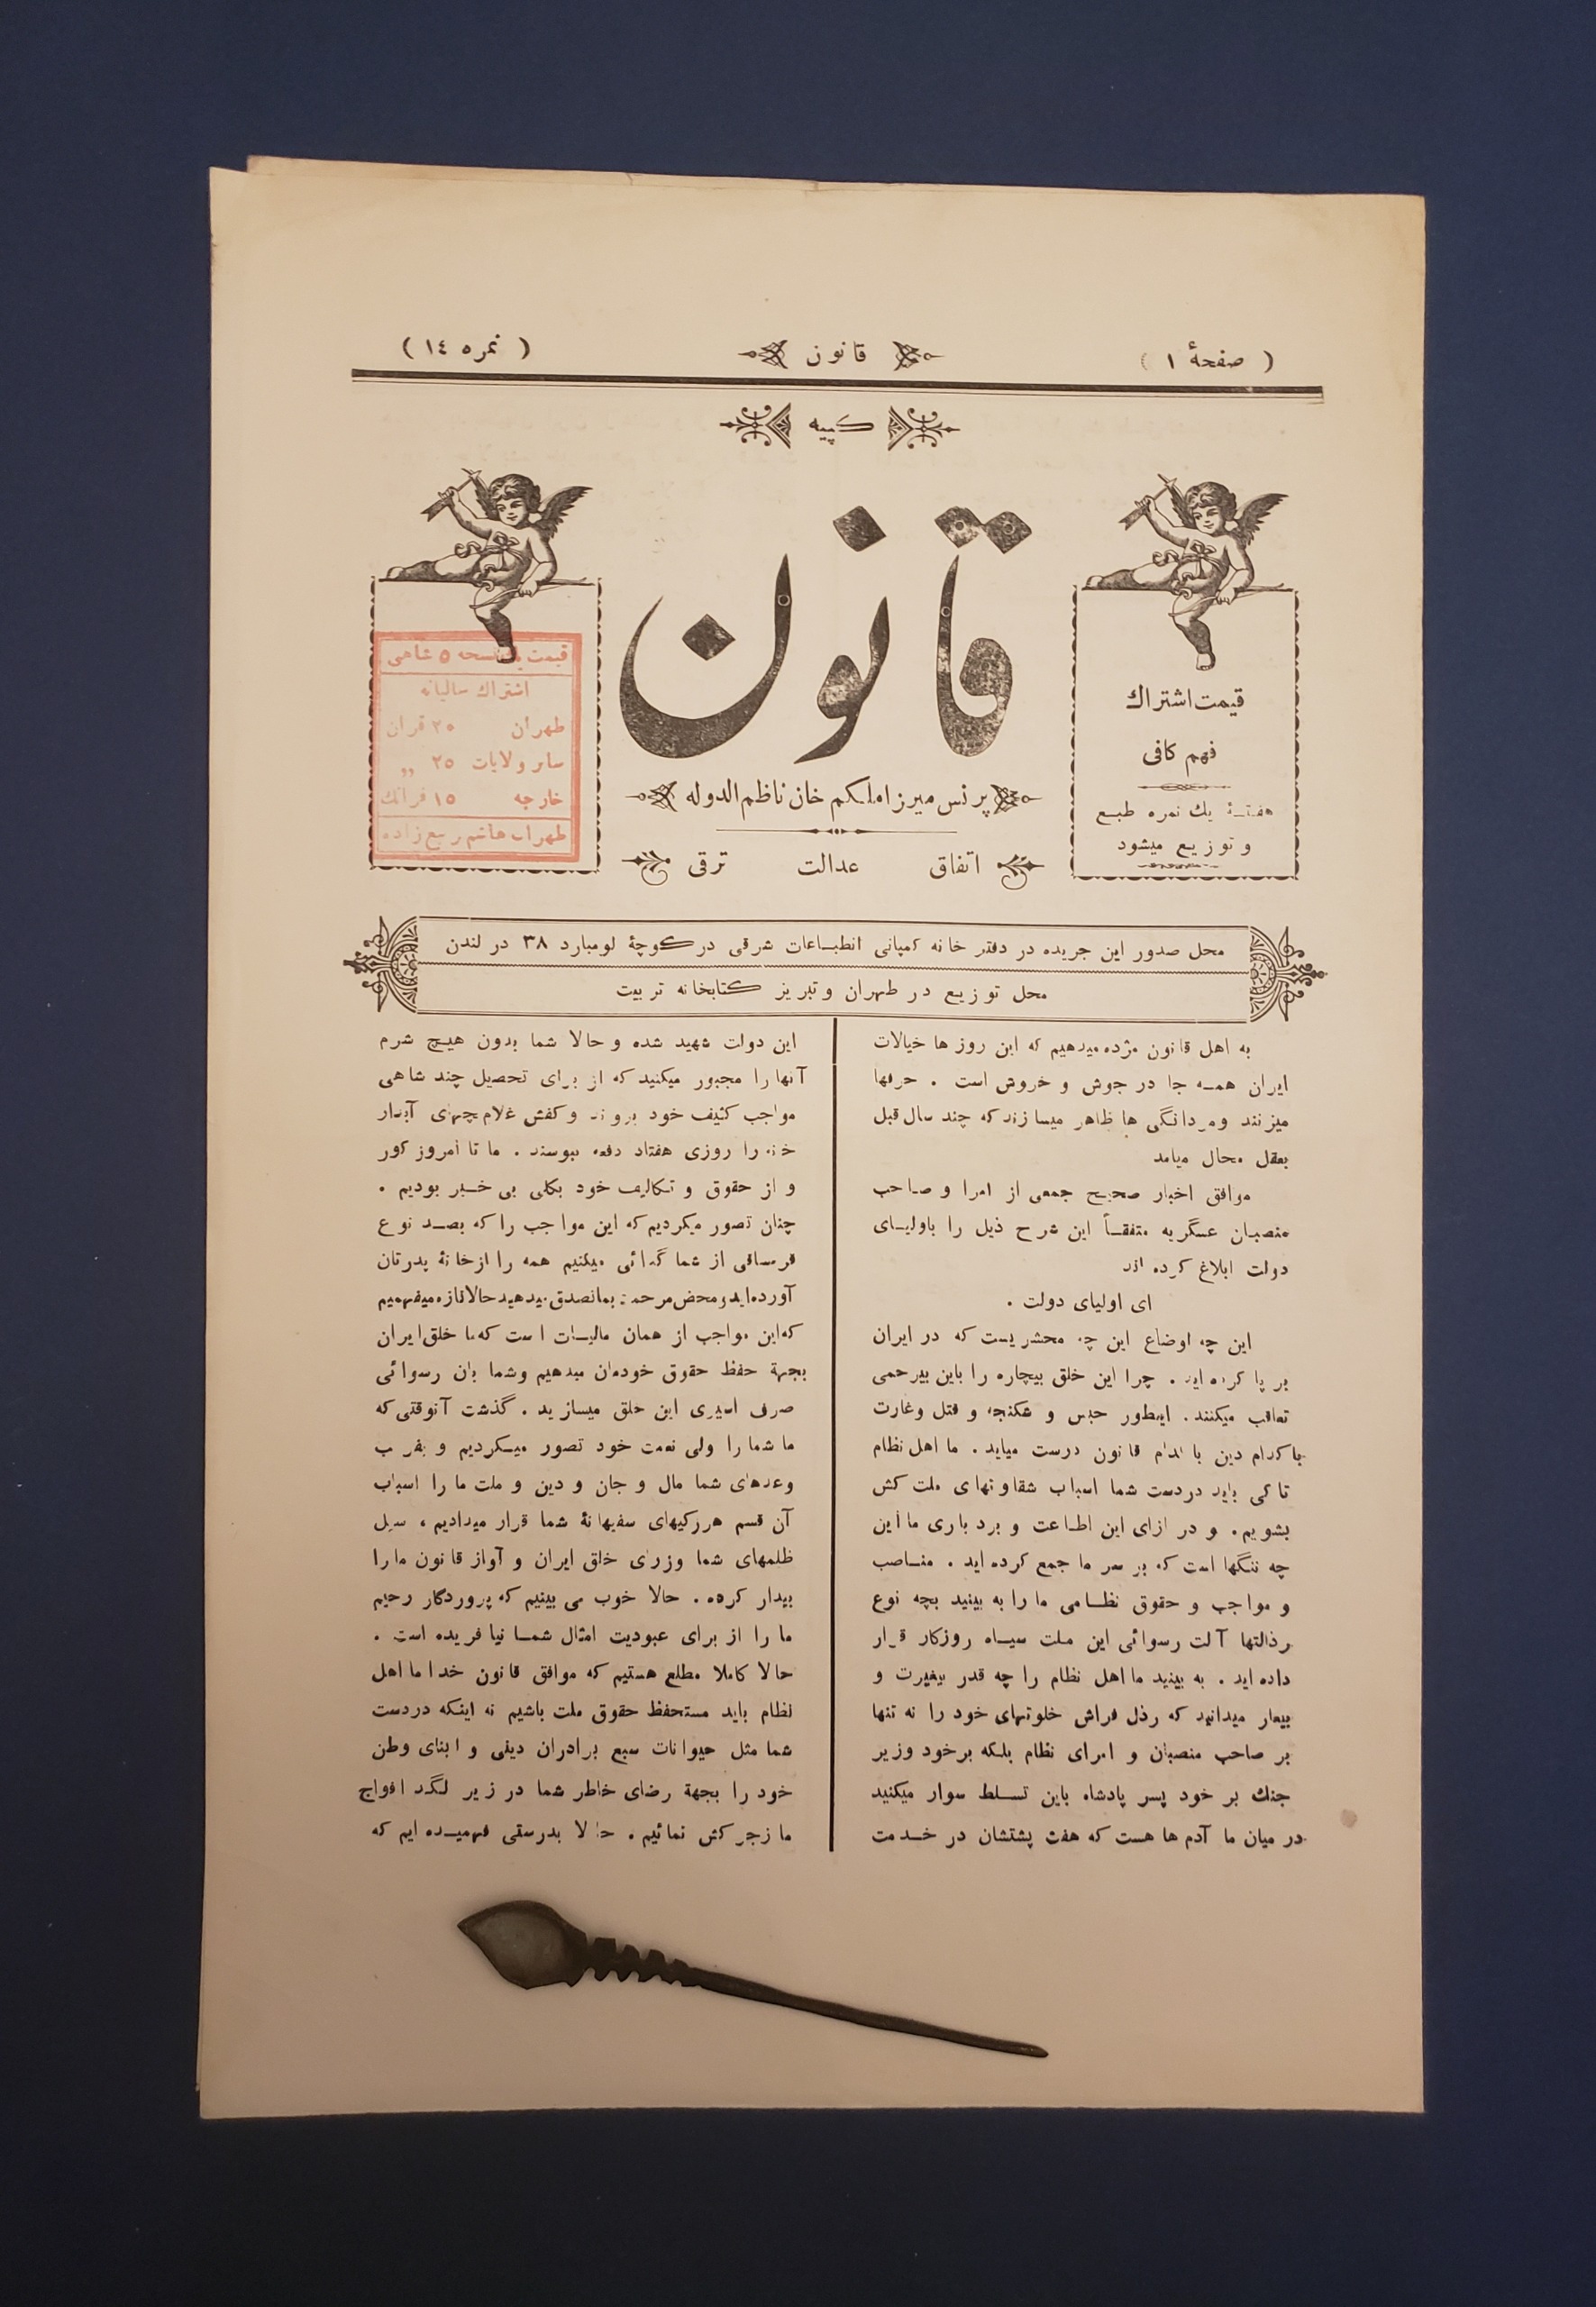 ( صفحهٔ ١ )
قانون
( نمره ١٤ )
کپیه
قانون
قیمت اشتراك
فهم کافی
هفتـهٔ یك نمره طبـع
و توزیع میشود
قیمت یك نسخه ٥ شاهی
اشتراك سالیانه
طهران ٢٠ قران
سایر ولایات ٢٥ ,,
خارجه ١٥ فرانك
طهران هاشم ربیع زاده
پرنس میرزا ملکم خان ناظم الدوله
اتفاق عدالت ترقی
محل صدور این جریده در دفتر خانه کمپانی انطبـاعات شرقی در کوچهٔ لومبارد ٣٨ در لندن
محل توزیع در طهران و تبریز کتابخانه تربیت
به اهل قانون مژده میدهیم که این روز ها خیالات
ایران همـه جا در جوش و خروش است . حرفها
میزنند و مردانگی ها ظاهر میسازند که چند سال قبل
بعقل محال میامد
موافق اخبار صحیح جمعی از امرا و صاحب
منصبان عسگریه متفقـاً این شرح ذیل را باولیـای
دولت ابلاغ کرده اند
ای اولیای دولت .
این چه اوضاع این چه محشریست که در ایران
بر پا کرده اید . چرا این خلق بیچاره را باین بیرحمی
تعاقب میکنند . اینطور حبس و شکنجه و قتل و غارت
با کدام دین با کدام قانون درست میاید . ما اهل نظام
تا کی باید در دست شما اسباب شقاوتهای ملت کش
بشویم . و در ازای این اطـاعت و برد باری ما این
چه ننگها است که بر سر ما جمع کرده اید . منـاصب
و مواجب و حقوق نظـامی ما را به بینید بچه نوع
رذالتها آلت رسوائی این ملت سیـاه روزکار قرار
داده اید . به بینید ما اهل نظام را چه قدر بیغیرت و
بیعار میدانید که رذل فراش خلوتهای خود را نه تنها
بر صاحب منصبان و امرای نظام بلکه بر خود وزیر
جنك بر خود پسر پادشاه باین تسـلط سوار میکنید
در میان ما آدم ها هست که هفت پشتشان در خـدمت
این دولت شهید شده و حالا شما بدون هیـچ شرم
آنها را مجبور میکنید که از برای تحصیل چند شاهی
مواجب کثیف خود بروند و کفش غلام چهای آبدار
خانه را روزی هفتاد دفعه ببوسند . ما تا امروز کور
و از حقوق و تکالیف خود بکلی بی خـبر بودیم .
چنان تصور میکردیم که این مواجب را که بصـد نوع
قرمساقی از شما گدائی میکنیم همه را از خانهٔ پدرتان
آورده اید و محض مرحمت بما تصدق میدهید حالا تازه میفهمیم
که این مواجب از همان مالیـات است که ما خلق ایران
بجهة حفظ حقوق خودمان میدهیم و شما بان رسوائی
صرف اسیری این خلق میسازید . گذشت آنوقتی که
ما شما را ولی نعمت خود تصور میـکردیم و بفریب
وعدهای شما مال و جان و دین و ملت ما را اسباب
آن قسم هرزکیهای سفیهانهٔ شما قرار میدادیم ، سیل
ظلمهای شما وزرای خلق ایران و آواز قانون ما را
بیدار کرده . حالا خوب می بینیم که پروردگار رحیم
ما را از برای عبودیت امثال شمـا نیافریده است .
حالا کاملا مطلع هستیم که موافق قانون خدا ما اهل
نظام باید مستحفظ حقوق ملت باشیم نه اینکه در دست
شما مثل حیوانات سبع برادران دینی و ابنای وطن
خود را بجهة رضای خاطر شما در زیر لگد افواج
ما زجر کش نمائیم . حالا بدرستی فهمیـده ایم که